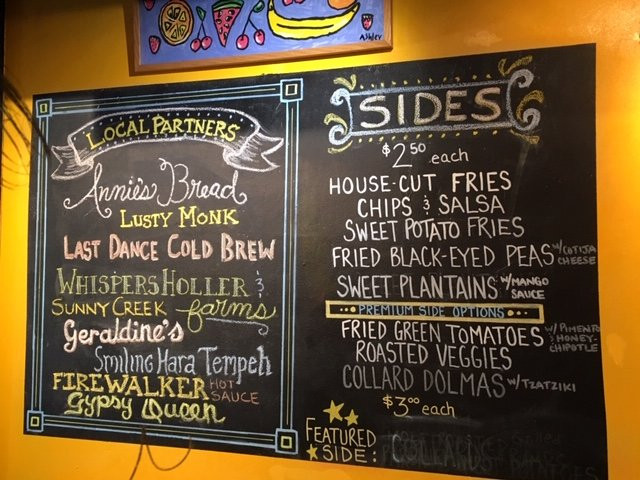 Ashley
LOCAL PARTNERS
Annie's Bread
LUSTY MONK
LAST DANCE COLD BREW
WHISPERSHOLLER &
SUNNY CREEK farms
Geraldine's
Smiling Hara Tempeh
FIREWALKER HOT SAUCE
Gypsy Queen
SIDES
$2.50 each
HOUSE-CUT FRIES
CHIPS & SALSA
SWEET POTATO FRIES
FRIED BLACK-EYED PEAS W/COTIJA CHEESE
SWEET PLANTAINS W/MANGO SAUCE
PREMIUM SIDE OPTIONS
FRIED GREEN TOMATOES W/ PIMENTO & HONEY-CHIPOTLE
ROASTED VEGGIES
COLLARD DOLMAS W/TZATZIKI
$3.00 each
FEATURED
SIDE: